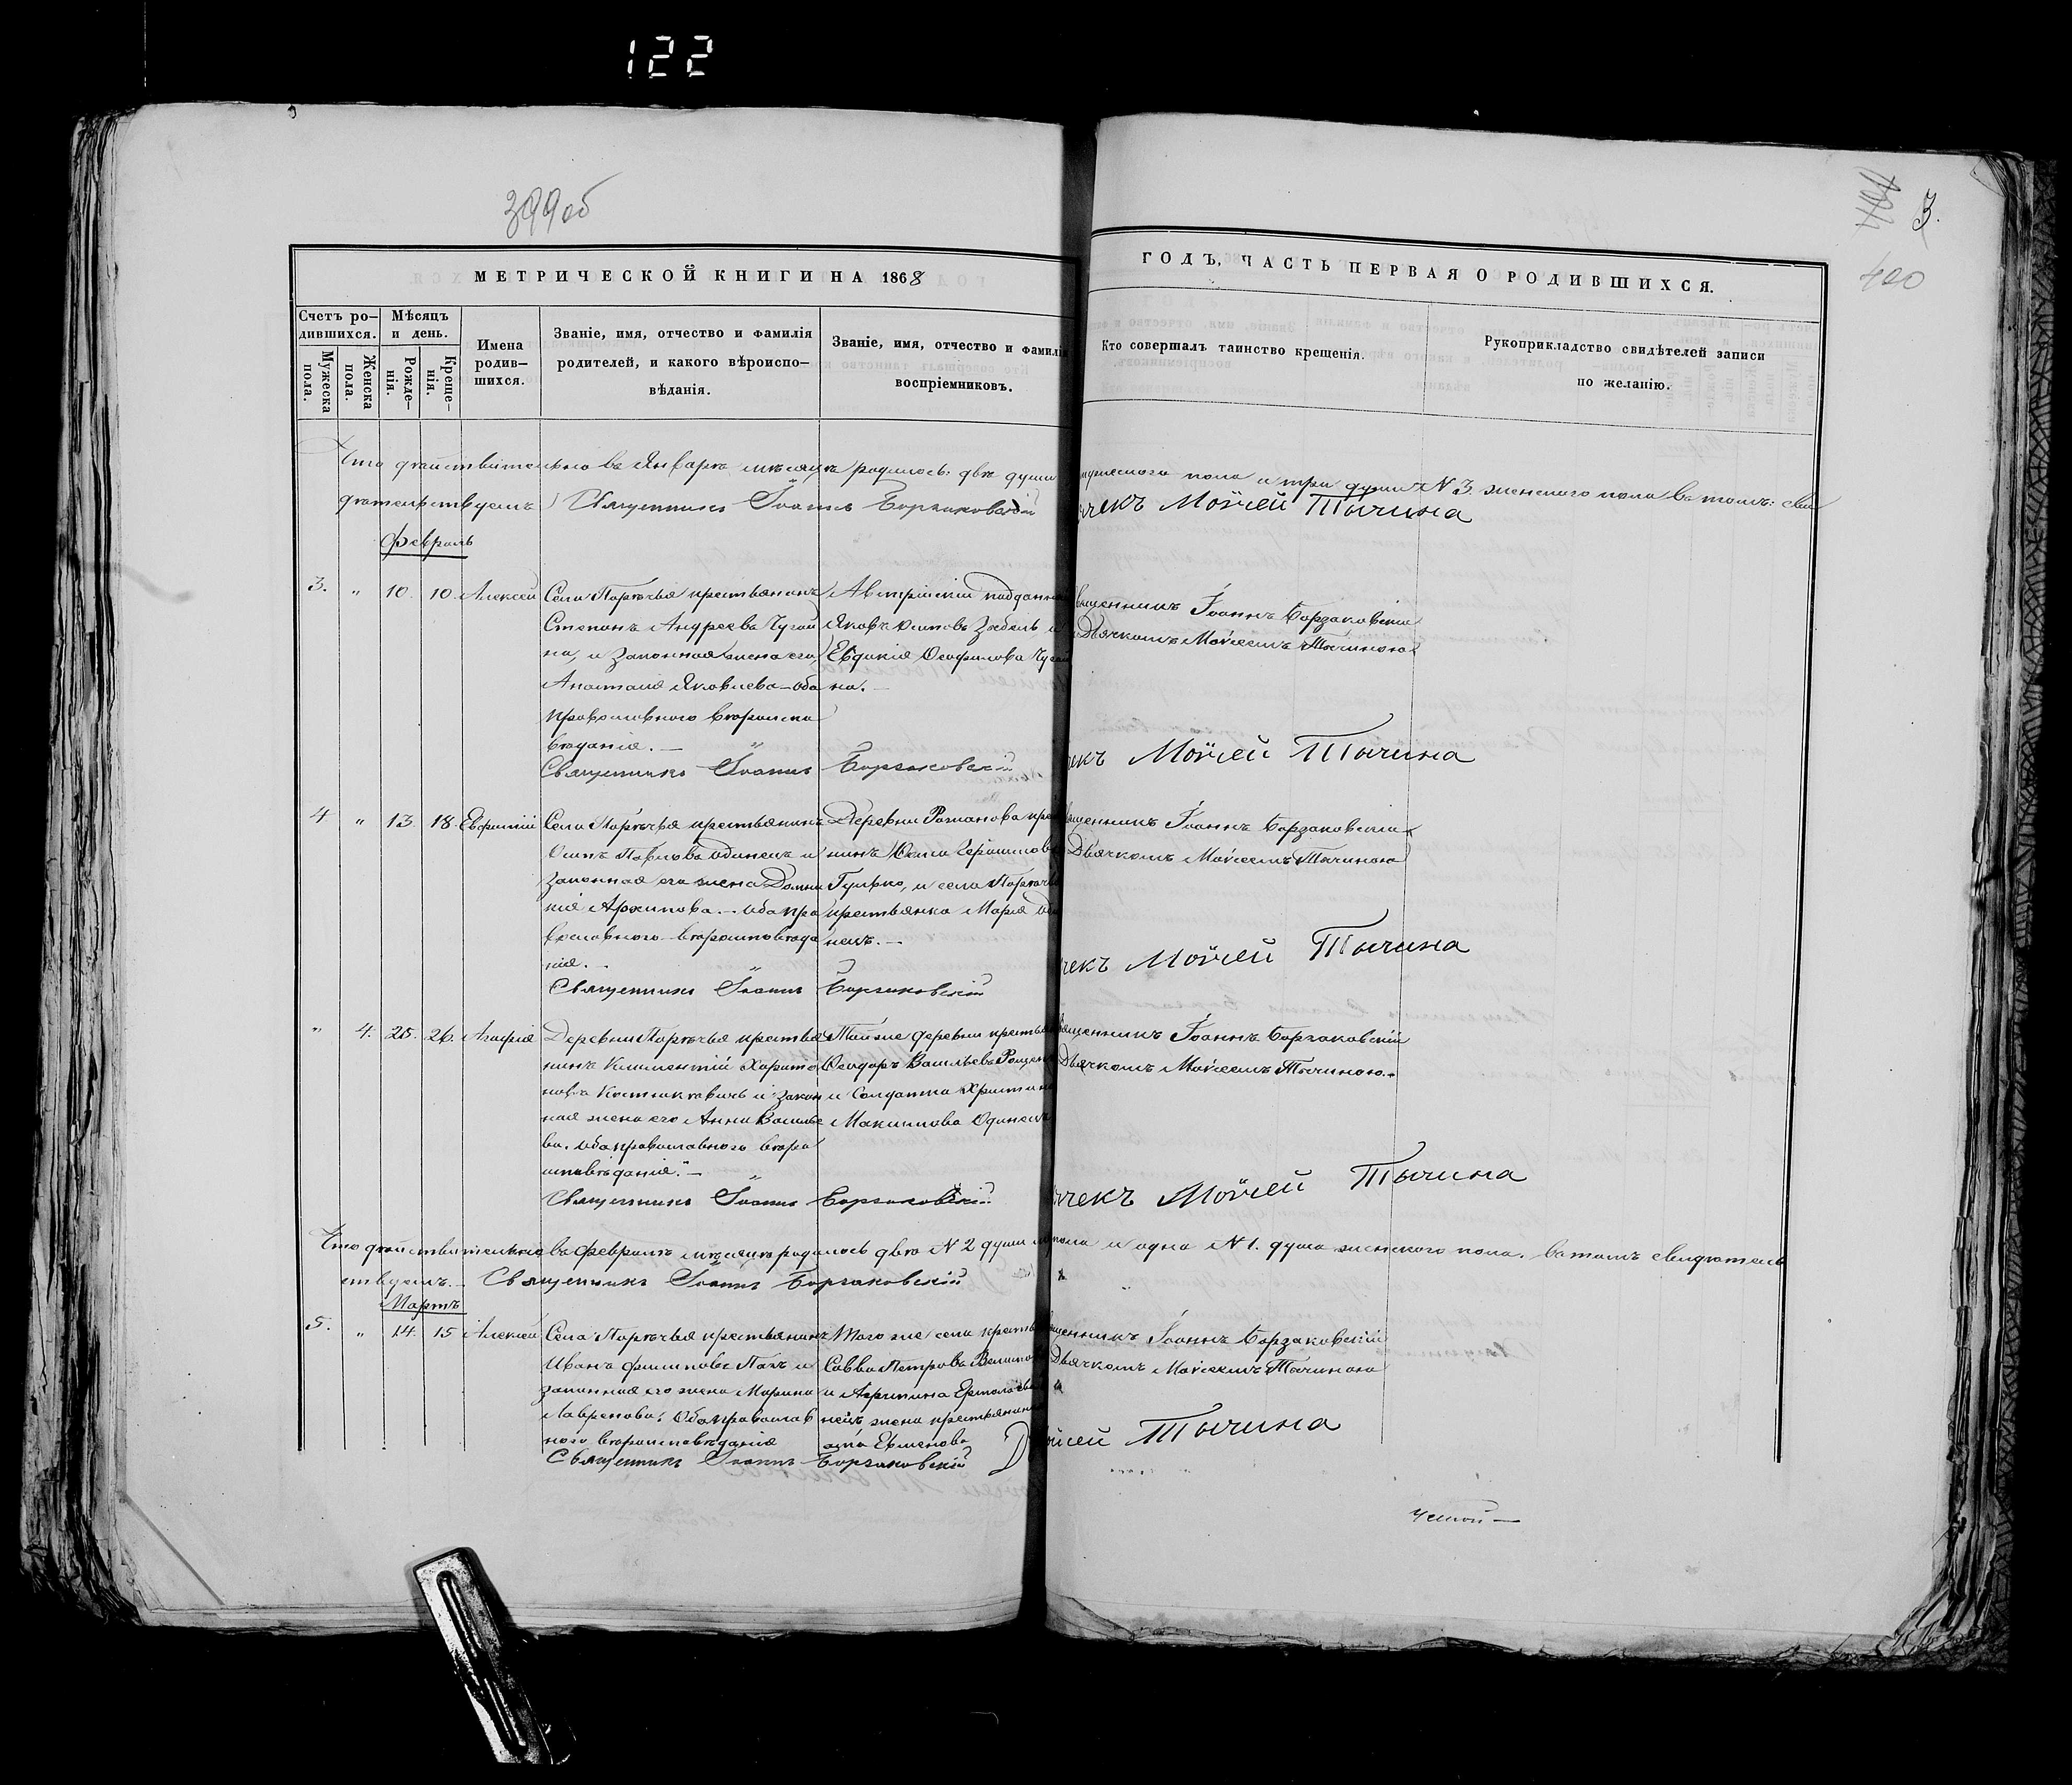 122
399об
3.
400
МЕТРИЧЕСКОЙ КНИГИ НА 1868
ГОДЪ, ЧАСТЬ ПЕРВАЯ О РОДИВШИХСЯ.
Счетъ ро-
дившихся.
Мужеска
пола.
Женска
пола.
Мѣсяцъ
и день.
Рожде-
нія.
Креще-
нія.
Имена
родив-
шихся.
Званіе, имя, отчество и фамилія
родителей, и какого вѣроиспо-
вѣданія.
Званіе, имя, отчество и фамилі
воспріемниковъ.
Кто совершалъ таинство крещенія.
Рукоприкладство свидѣтелей записи
по желанію.
Что дѣйствительно въ Январѣ мѣсяцѣ родилось: двѣ души мужескаго пола и три души N 3. женского пола въ томъ: сви
дѣтельствуемъ Священникъ Іоаннъ Борзаковскій
чекъ Мойсей Тычина
Февраль
3. " 10. 10. Алексѣй
Села Порѣчья крестьянинъ
Степанъ Андреевъ
на, и законная жена его
Анастасія Яковлева - оба
православного вѣроиспо
вѣданія. —
Священникъ Іоаннъ Борзаковскій
Австрійскій подданный
Яковъ
Евдокія Ѳеофилова
на. —
вященникъ Іоаннъ Борзаковскій
Дьячкомъ Мойсеемъ Тычиною
екъ Мойсей Тычина
4 " 13. 18.
Села Порѣчья крестьянинъ
Осипъ Павловъ Одинецъ и
законная его жена Домни
кія Архипова. — оба пра
вославного вѣроисповѣда
нія. —
Священникъ Іоаннъ Борзаковскій
Деревни Романова крес
нинъ
Гулько, и села Порѣчья
крестьянка Марія Оди
нецъ. —
ященникъ Іоаннъ Борзаковскій
Дьячкомъ Мойсеемъ Тычиною
чекъ Мойсей Тычина
" 4. 25. 26. Агафія
Деревни Порѣчья крестья
нинъ Климентій Харито
новъ и закон
ная жена его Анна Василье
ва. оба православного вѣро
исповѣданія. —
Священникъ Іоаннъ Борзаковскій
Тойже деревни крестьян
Ѳеодоръ Васильевъ
и Солдатка Христина
Максимова Одинецъ
вященникъ Іоаннъ Борзаковскій
Дьячкомъ Мойсеемъ Тычиною. —
чекъ Мойсей Тычина
Что дѣйствительно въ февралѣ мѣсяцѣ родилось двѣ N 2 души м пола и одна N 1. душа женского пола. въ томъ свидѣтель
ствуемъ. — Священникъ Іоаннъ Борзаковскій
Мартъ
5. " 14. 15 Алексѣй
Села Порѣчья крестьянинъ
Иванъ Филиповъ и
законная его жена Марина
Лавренова: Оба православ
ного вѣроисповѣданія
Священникъ Іоаннъ Борзаковскій
Того же села крестья
Савва Петровъ
и Агрипина Ермолаева
жена крестьянина
щенникъ Іоаннъ Борзаковскій
Дьячкомъ Мойсеемъ Тычиною
ойсей Тычина